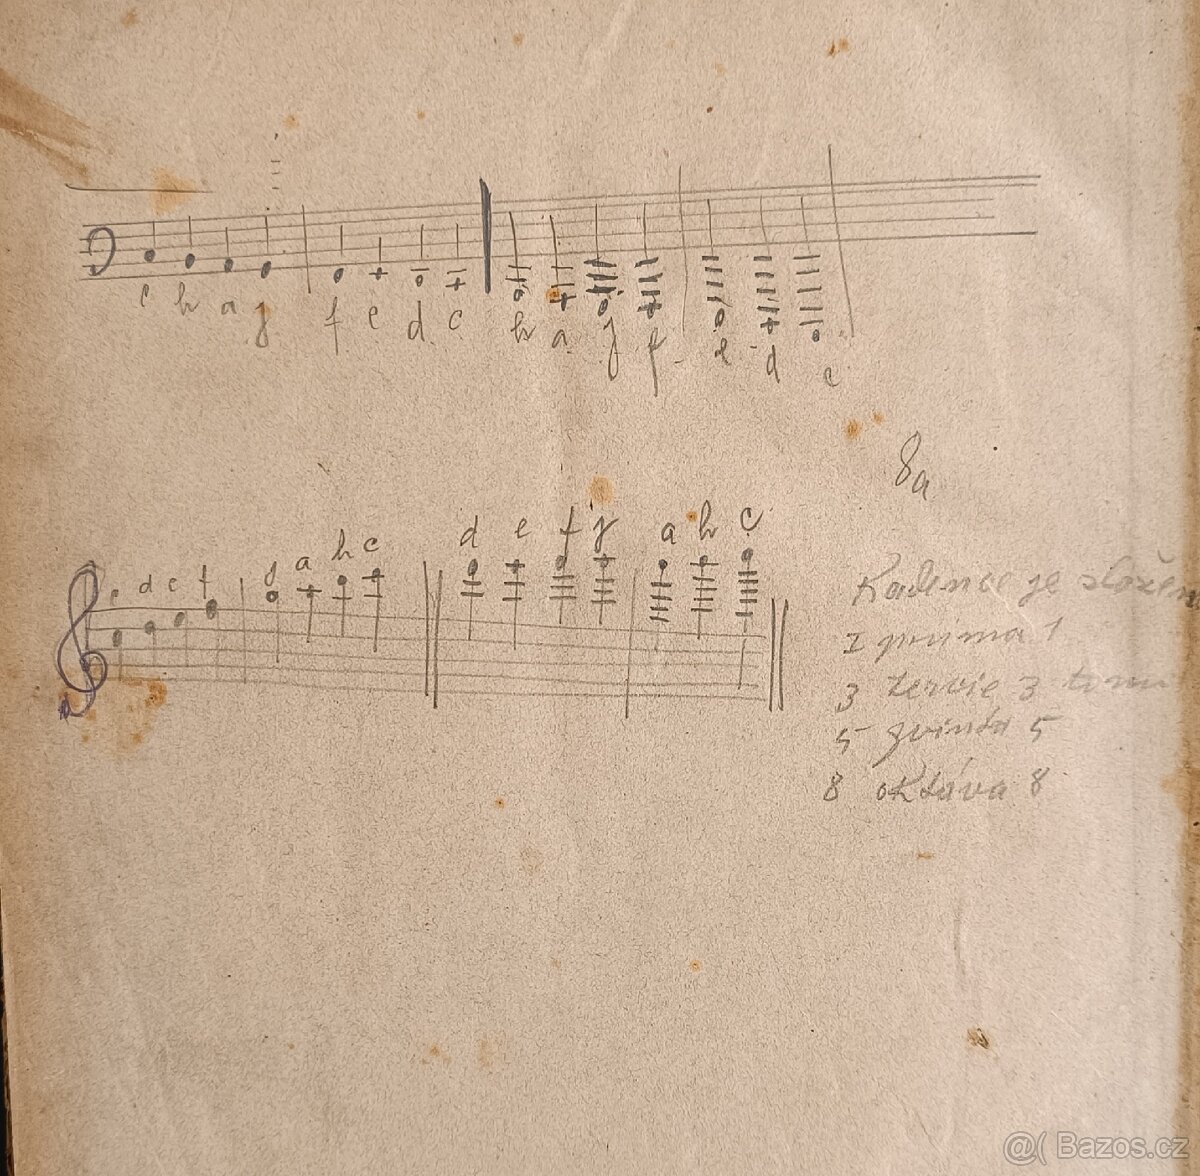 c h a g f e d c h a g f e d c
8a
d e f g a h c
c d e f g a h c
Kadence je složen
1 prima 1
3 tercie 3 tonu
5 kvinta 5
8 oktáva 8
@( Bazos.cz